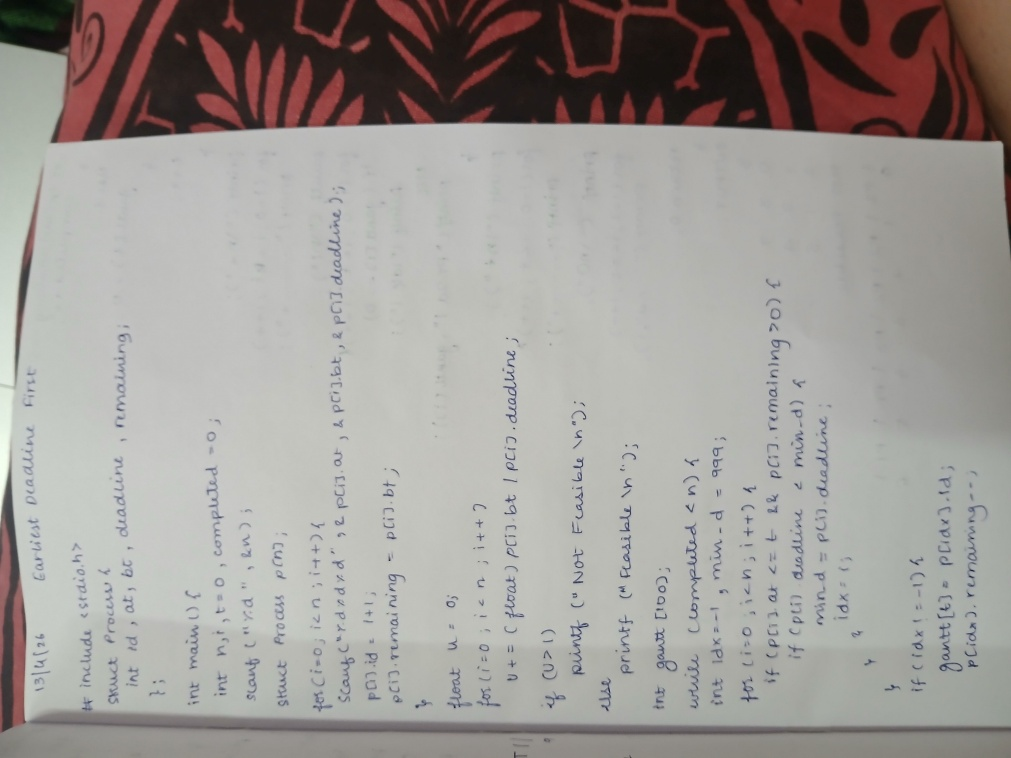 13/4/26 Earliest Deadline First
# include <stdio.h>
struct Process {
int id, at, bt, deadline, remaining;
};
int main() {
int n, i, t=0, completed =0;
scanf ("%d", &n);
struct Process p[n];
for(i=0; i<n; i++) {
scanf("%d%d%d", & p[i].at, & p[i].bt, & p[i].deadline);
p[i].id = i+1;
p[i].remaining = p[i].bt;
}
float u = 0;
for(i=0; i<n; i++)
u += (float) p[i].bt / p[i].deadline;
if (u>1)
printf ("Not Feasible \n");
else
printf ("Feasible \n");
int gantt [100];
while (completed < n) {
int idx=-1, min-d = 999;
for (i=0; i<n; i++) {
if (p[i].at <= t && p[i].remaining >0) {
if (p[i] deadline < min-d) {
min-d = p[i].deadline;
idx = i;
}
}
}
if (idx != -1) {
gantt[t] = p[idx].id;
p[idx].remaining--;